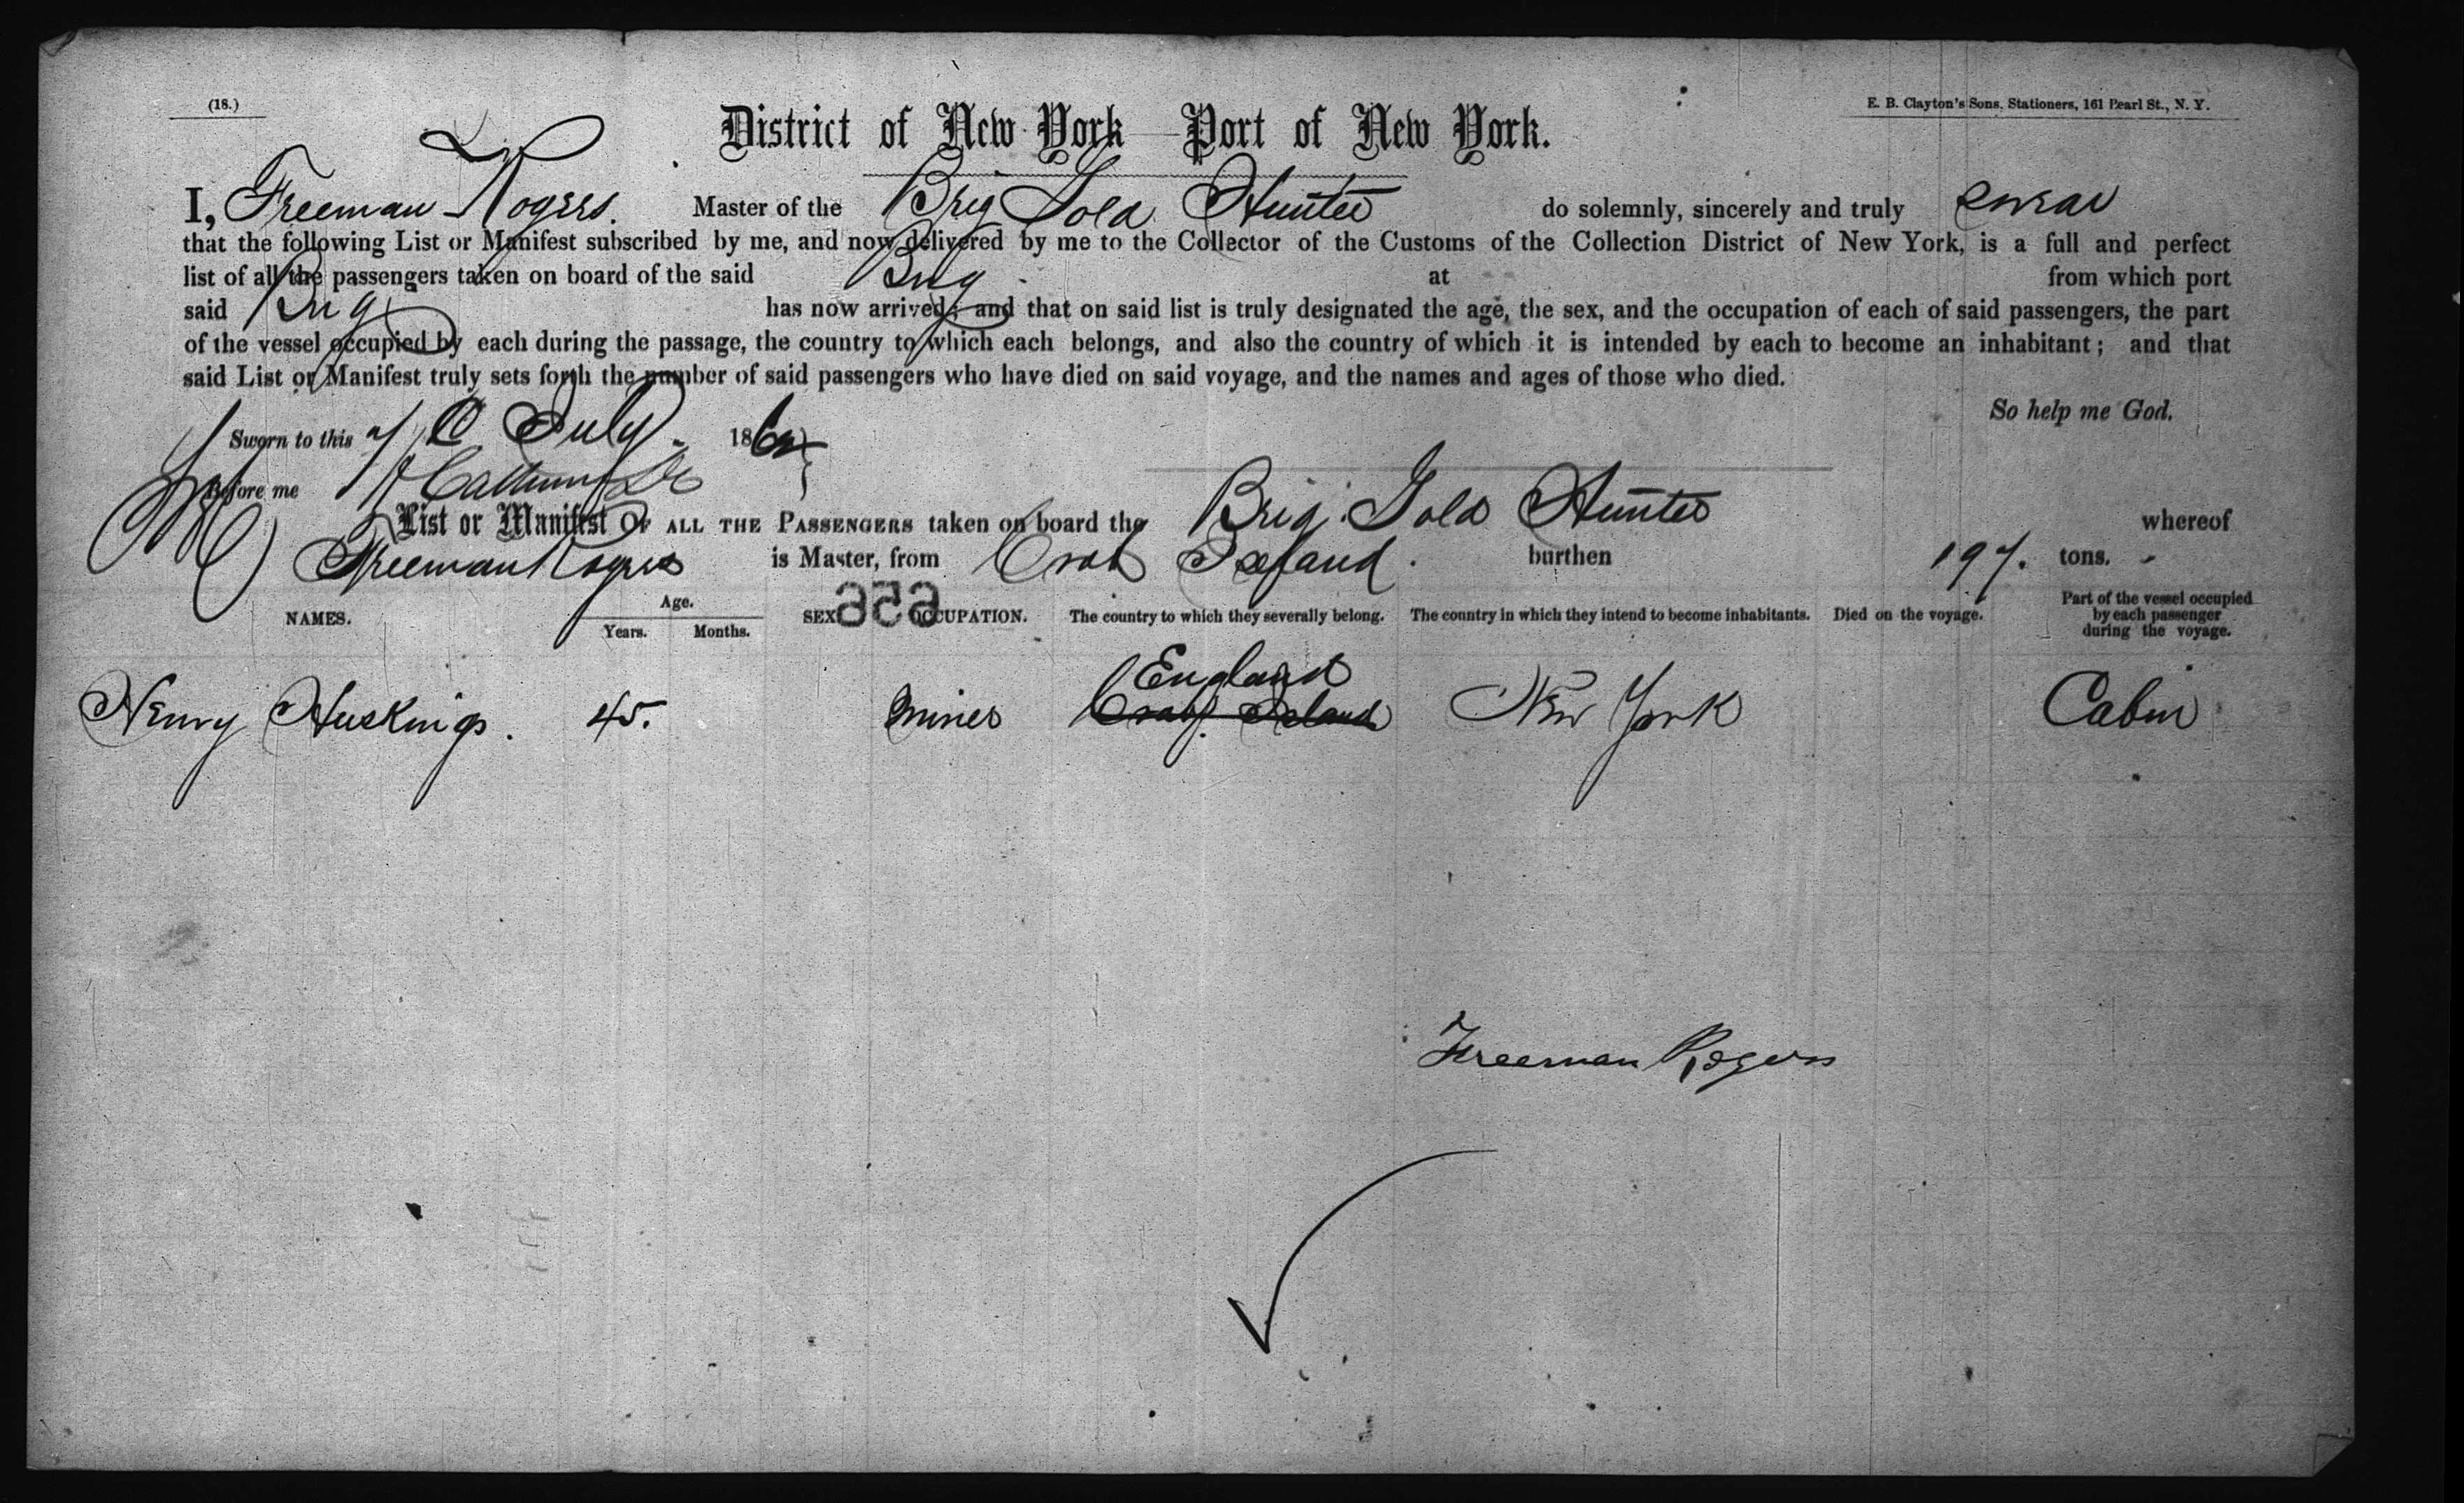 (18.)
E. B. Clayton's Sons, Stationers, 161 Pearl St., N. Y.
District of New York—Port of New York.
I, Freeman Rogers. Master of the Brig Gold Hunter do solemnly, sincerely and truly swear
that the following List or Manifest subscribed by me, and now delivered by me to the Collector of the Customs of the Collection District of New York, is a full and perfect
list of all the passengers taken on board of the said Brig at from which port
said Brig has now arrived; and that on said list is truly designated the age, the sex, and the occupation of each of said passengers, the part
of the vessel occupied by each during the passage, the country to which each belongs, and also the country of which it is intended by each to become an inhabitant; and that
said List or Manifest truly sets forth the number of said passengers who have died on said voyage, and the names and ages of those who died.
So help me God.
Sworn to this July 18
Before me
List or Manifest OF ALL THE PASSENGERS taken on board the Brig. Gold Hunter whereof
Freeman Rogers is Master, from Crab Island. burthen 197. tons.
656
NAMES. Age. Years. Months. SEX OCCUPATION. The country to which they severally belong. The country in which they intend to become inhabitants. Died on the voyage. Part of the vessel occupied by each passenger during the voyage.
England
Henry Huskings. 45. Miner Crab. Island New York Cabin
Freeman Rogers